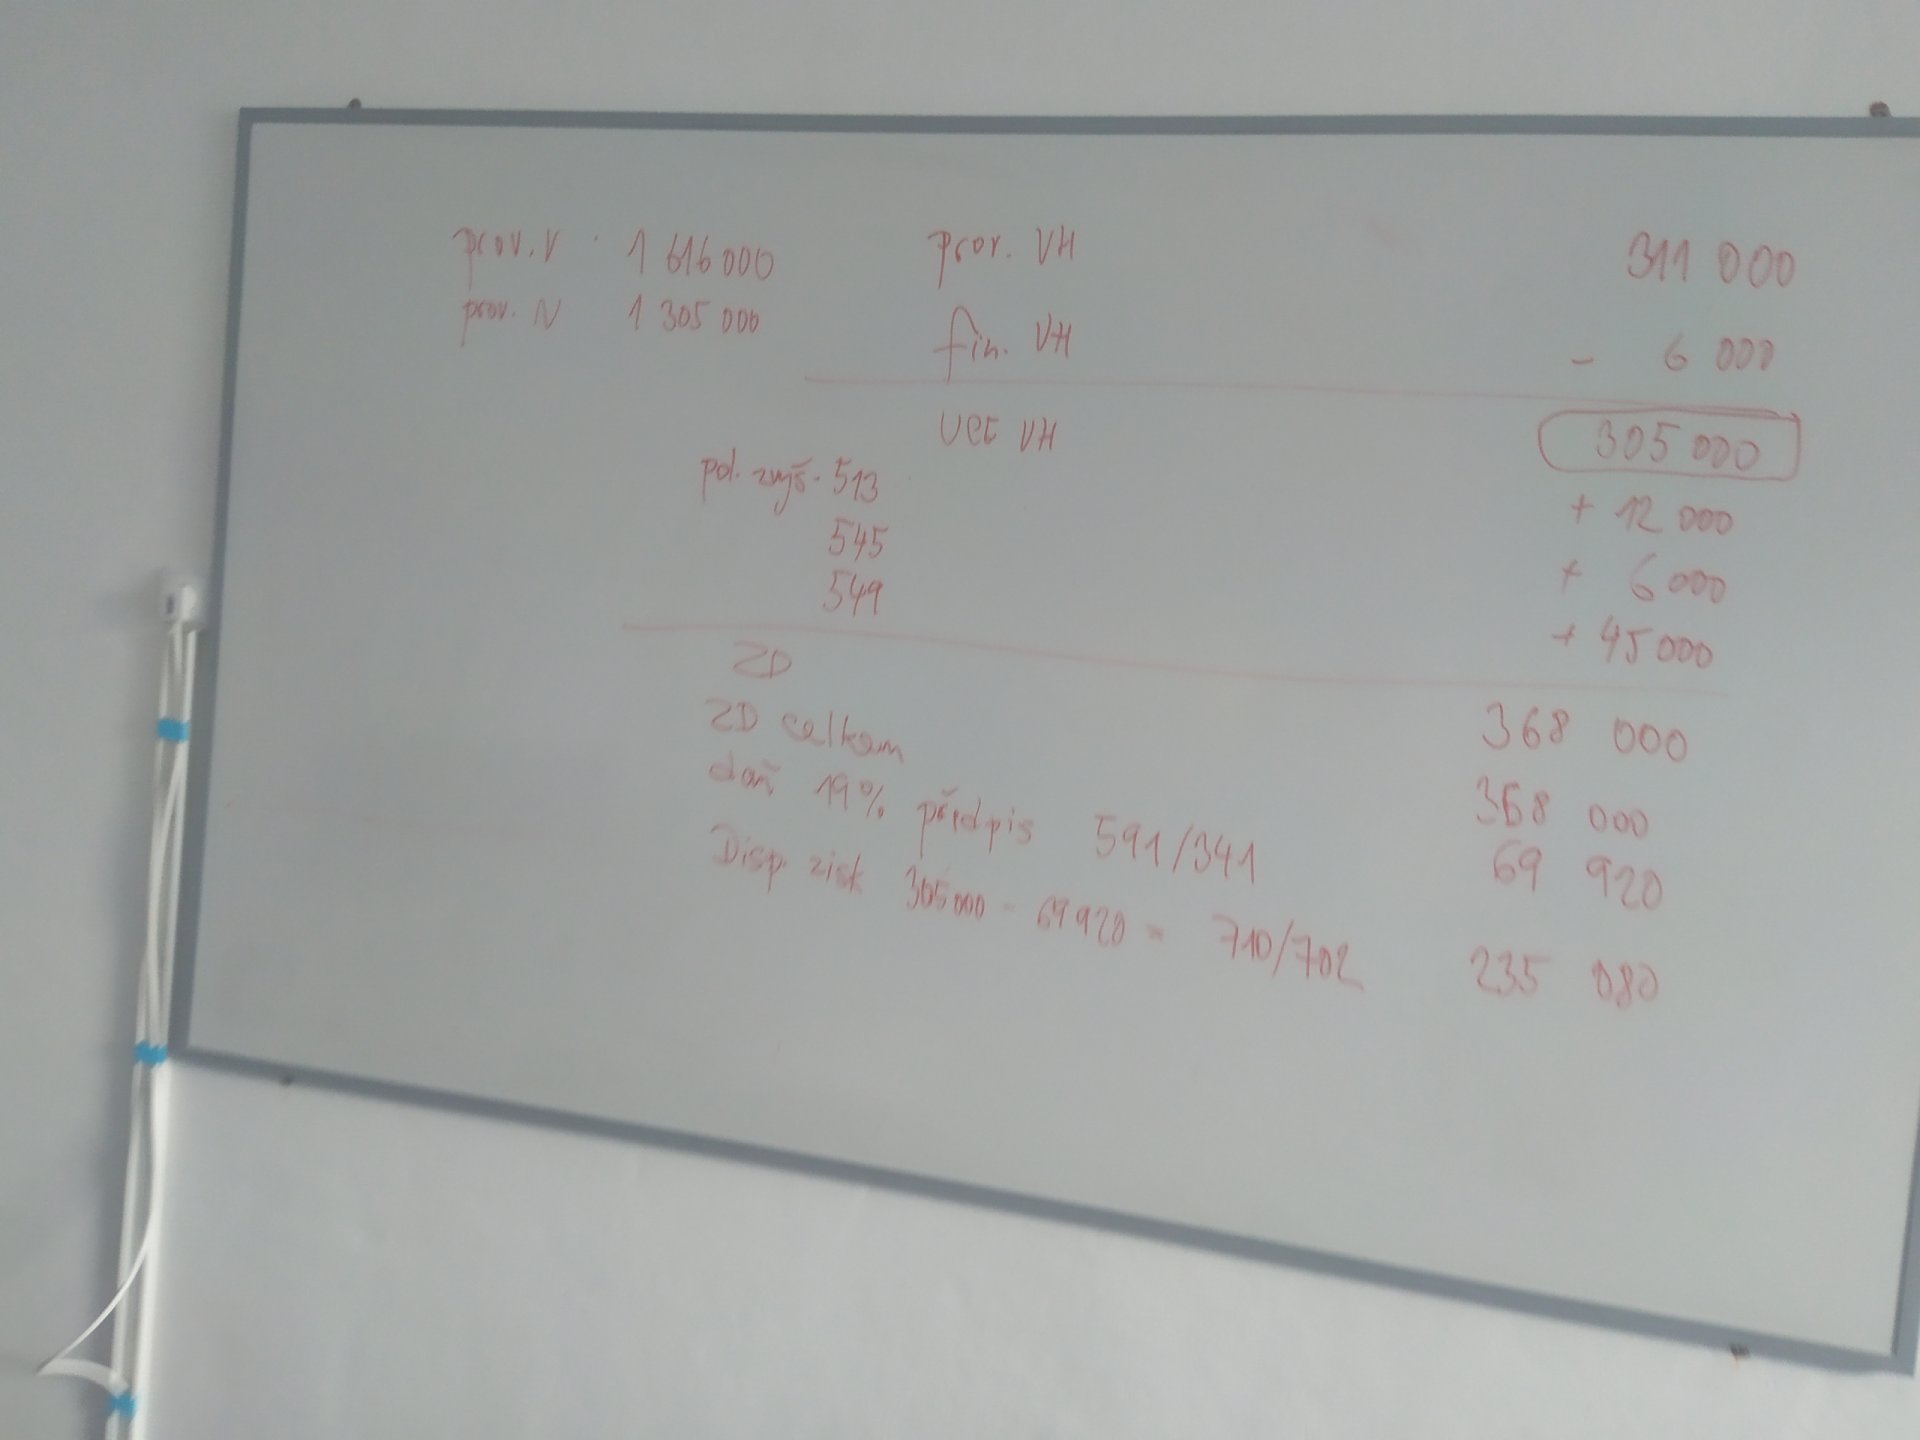 prov. V 1 616 000 prov. VH 311 000
prov. N 1 305 000 fin. VH - 6 000
UCE VH 305 000
pol. zvýš. 513 + 12 000
545 + 6 000
549 + 45 000
ZD 368 000
ZD celkem 368 000
daň 19% předpis 591/341 69 920
Disp. zisk 305 000 - 69 920 = 710/702 235 080